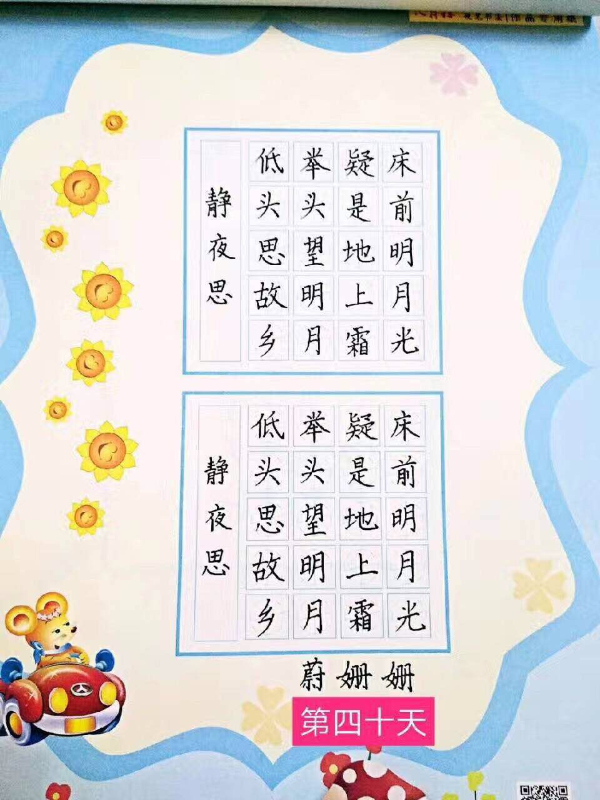 床前明月光
疑是地上霜
举头望明月
低头思故乡
静夜思
床前明月光
疑是地上霜
举头望明月
低头思故乡
静夜思
蔚姗姗
第四十天